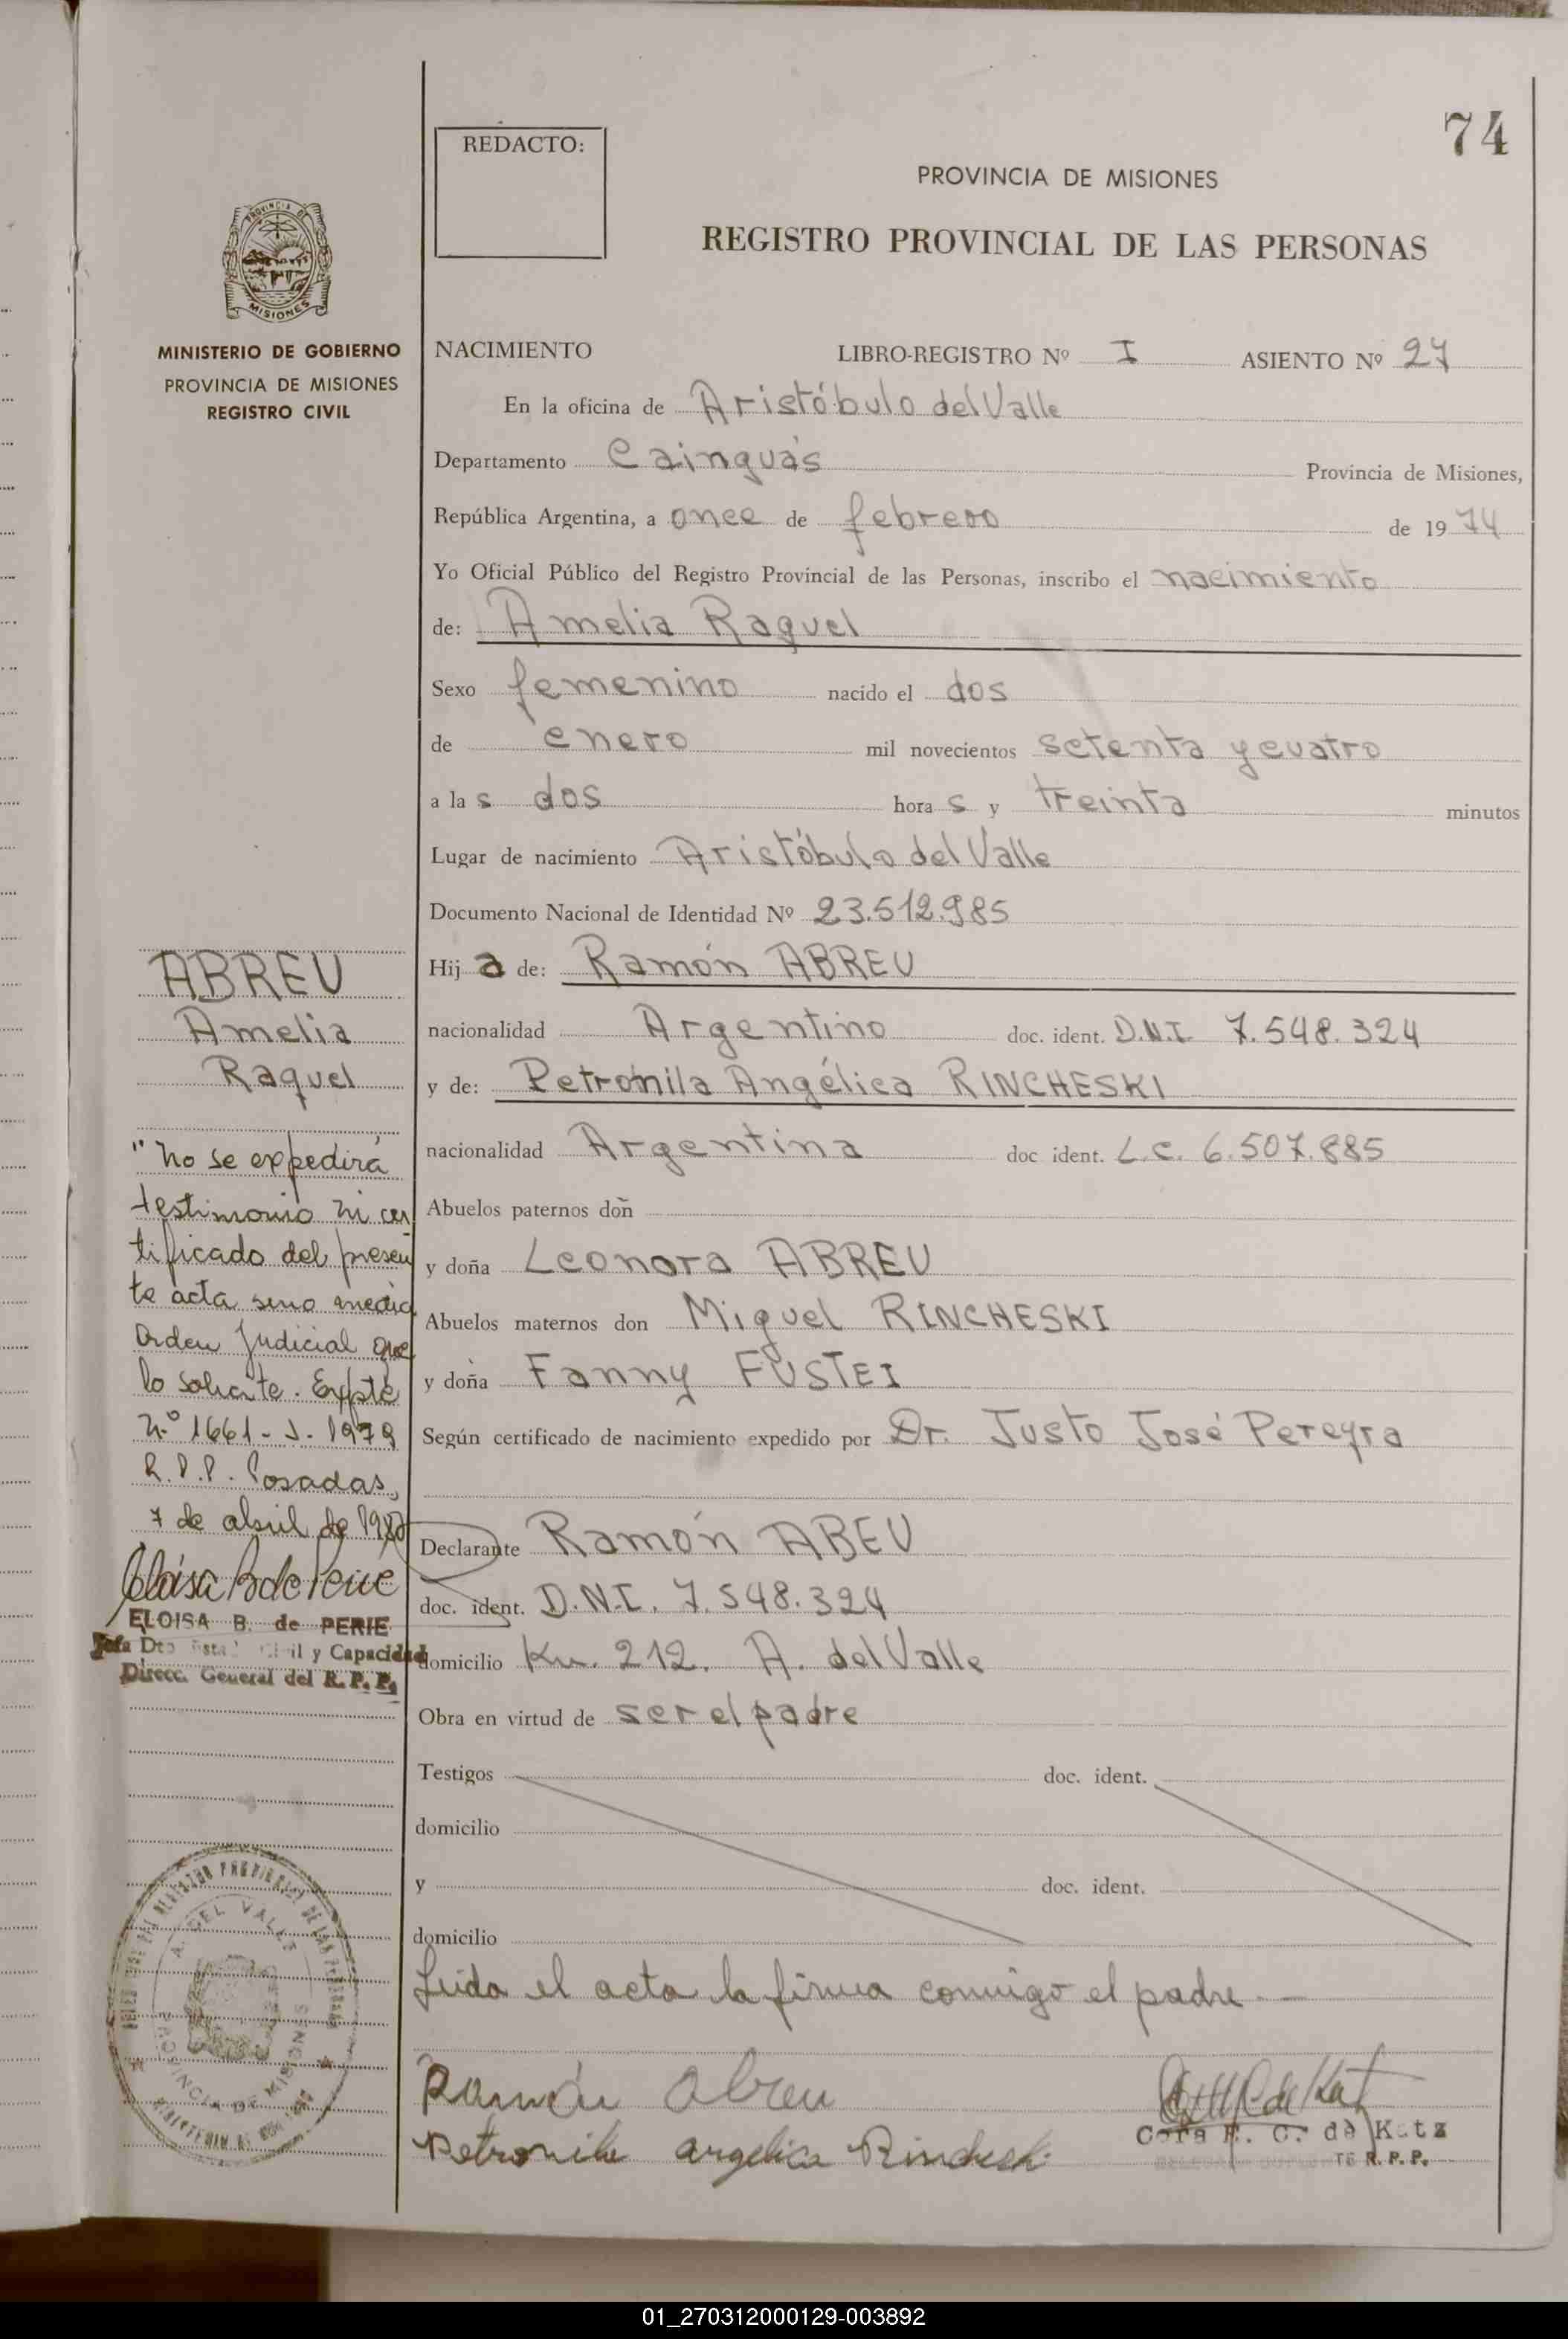 74
REDACTO:
PROVINCIA DE MISIONES
REGISTRO PROVINCIAL DE LAS PERSONAS
PROVINCIA DE
MISIONES
MINISTERIO DE GOBIERNO
PROVINCIA DE MISIONES
REGISTRO CIVIL
NACIMIENTO LIBRO-REGISTRO Nº I ASIENTO Nº 27
En la oficina de Aristóbulo del Valle
Departamento Cainguás Provincia de Misiones,
República Argentina, a once de febrero de 1974
Yo Oficial Público del Registro Provincial de las Personas, inscribo el nacimiento
de: Amelia Raquel
Sexo femenino nacido el dos
de enero mil novecientos setenta y cuatro
a las dos horas y treinta minutos
Lugar de nacimiento Aristóbulo del Valle
Documento Nacional de Identidad Nº 23.512.985
Hija de: Ramón ABREU
nacionalidad Argentino doc. ident. D.N.I. 7.548.324
y de: Petronila Angélica RINCHESKI
nacionalidad Argentina doc ident. L.C. 6.507.885
Abuelos paternos doñ
y doña Leonora ABREU
Abuelos maternos don Miguel RINCHESKI
y doña Fanny FUSTEI
Según certificado de nacimiento expedido por Dr. Justo José Pereyra
Declarante Ramón ABEU
doc. ident. D.N.I. 7.548.324
domicilio Km. 212. A. del Valle
Obra en virtud de ser el padre
Testigos doc. ident.
domicilio
y doc. ident.
domicilio
Leida el acta la firma conmigo el padre.—
Ramón Abreu
Petronila Angelica Rincheski
Cora E. C. de Katz
R.P.P.
ABREU
Amelia
Raquel
"No se expedirá
testimonio ni cer
tificado del presen
te acta sino media
Orden Judicial que
lo solicite. Expte
Nº 1661-J-1979
R.P.P. Posadas,
7 de abril de 1980
ELOISA B. de PERIE
Jefa Dto. y Capacidad
Direcc. General del R.P.P.
A. DEL VALLE
PROVINCIA DE MISIONES
01_270312000129-003892